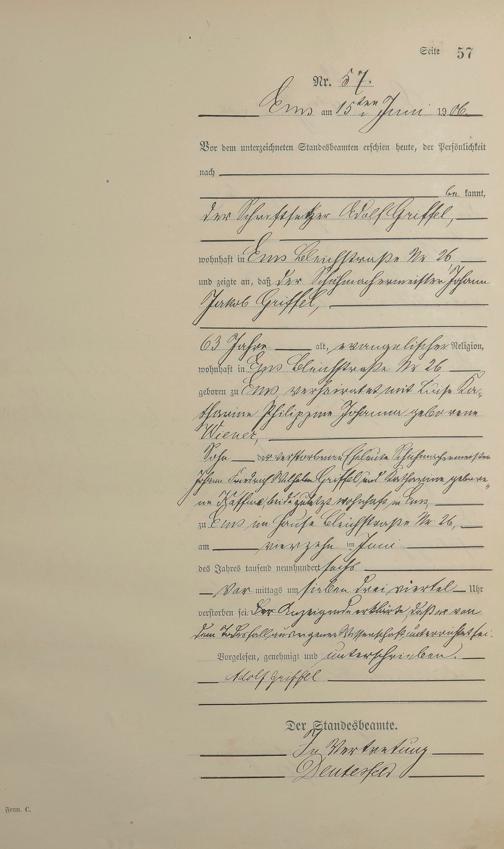 Seite 57
Nr. 57.
Ems am 15ten Juni 1906
Vor dem unterzeichneten Standesbeamten erschien heute, der Persönlichkeit
nach
be kannt,
der Schriftsetzer Adolf Griffel,
wohnhaft in Ems Bleichstraße Nr 26
und zeigte an, daß der Schuhmachermeister Johann
Jakob Griffel,
63 Jahre alt, evangelischer Religion,
wohnhaft in Ems Bleichstraße Nr 26
geboren zu Ems verheiratet mit Luise Ka-
tharine Philippine Johanna geborene
Wiener,
Sohn der verstorbenen Eheleute Schuhmachermeister
Johann Friedrich Wilhelm Griffel und Katharine gebore-
ne beide zuletzt wohnhaft in Ems
zu Ems im Hause Bleichstraße Nr 26,
am vierzehn ten Juni
des Jahres tausend neunhundert sechs
Vor mittags um sieben drei viertel Uhr
verstorben sei. Der Anzeigende erklärte, daß er von
dem Todesfall aus eigener Wissenschaft unterrichtet sei.
Vorgelesen, genehmigt und unterschrieben.
Adolf Griffel
Der Standesbeamte.
In Vertretung
Form. C.